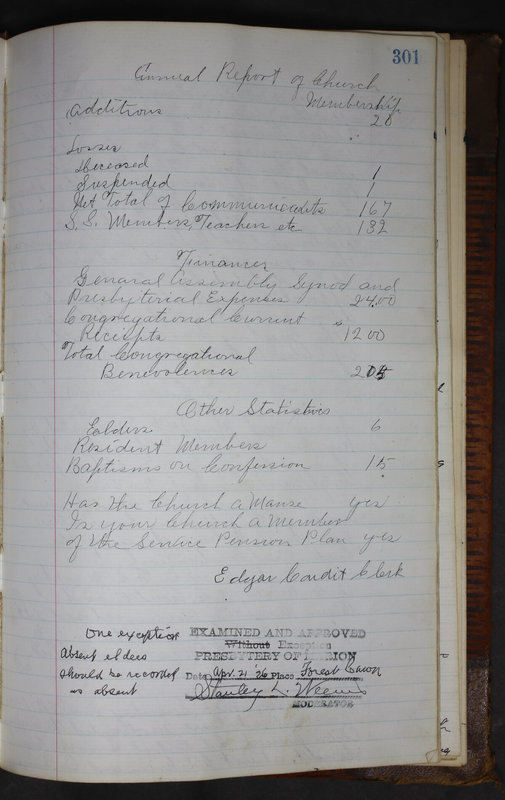 301
Annual Report of Church
Membership
Additions 20
Losses
Deceased 1
Suspended 1
Net Total of Communicants 167
S.S. Members, Teachers etc 132
Finances
General Assembly Synod and
Presbyterial Expenses 24.00
Congregational Current
Receipts $1200
Total Congregational
Benevolences 205
Other Statistics
Eolders 6
Resident Members
Baptisms on Confession 15
Has the Church a Manse yes
Is your Church a Member
of the Service Pension Plan yes
Edgar Condit Clerk
One exception
Absent elders
should be recorded
as absent
EXAMINED AND APPROVED
Without Exception
PRESBYTERY OF MARION
Date Apr. 21 '26 Place Forest Lawn
Stanley L.
MODERATOR